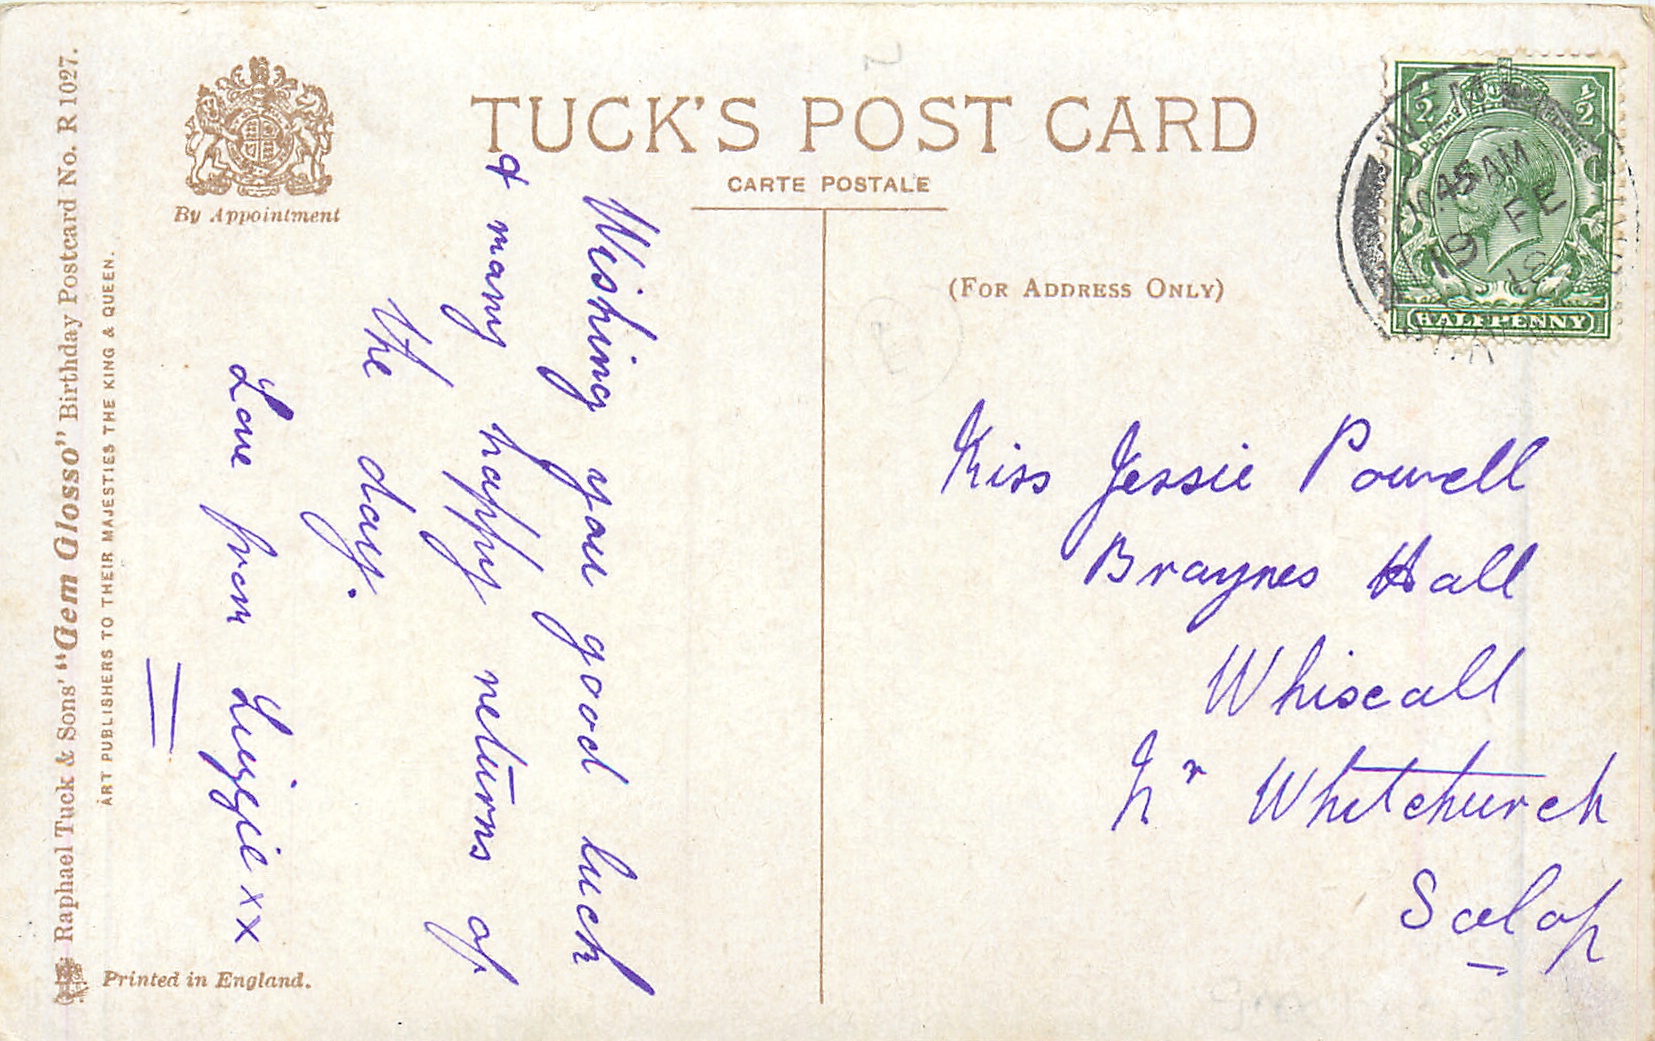 TUCK'S POST CARD
CARTE POSTALE
By Appointment
(FOR ADDRESS ONLY)
Raphael Tuck & Sons' "Gem Glosso" Birthday Postcard No. R 1027.
ART PUBLISHERS TO THEIR MAJESTIES THE KING & QUEEN.
Printed in England.
Wishing you good luck
& many happy returns of
the day.
Love from Lizzie xx
Miss Jessie Powell
Braynes Hall
Whixall
Nr Whitchurch
Salop
½ ½
POSTAGE
HALFPENNY
10 45 AM
19 FE